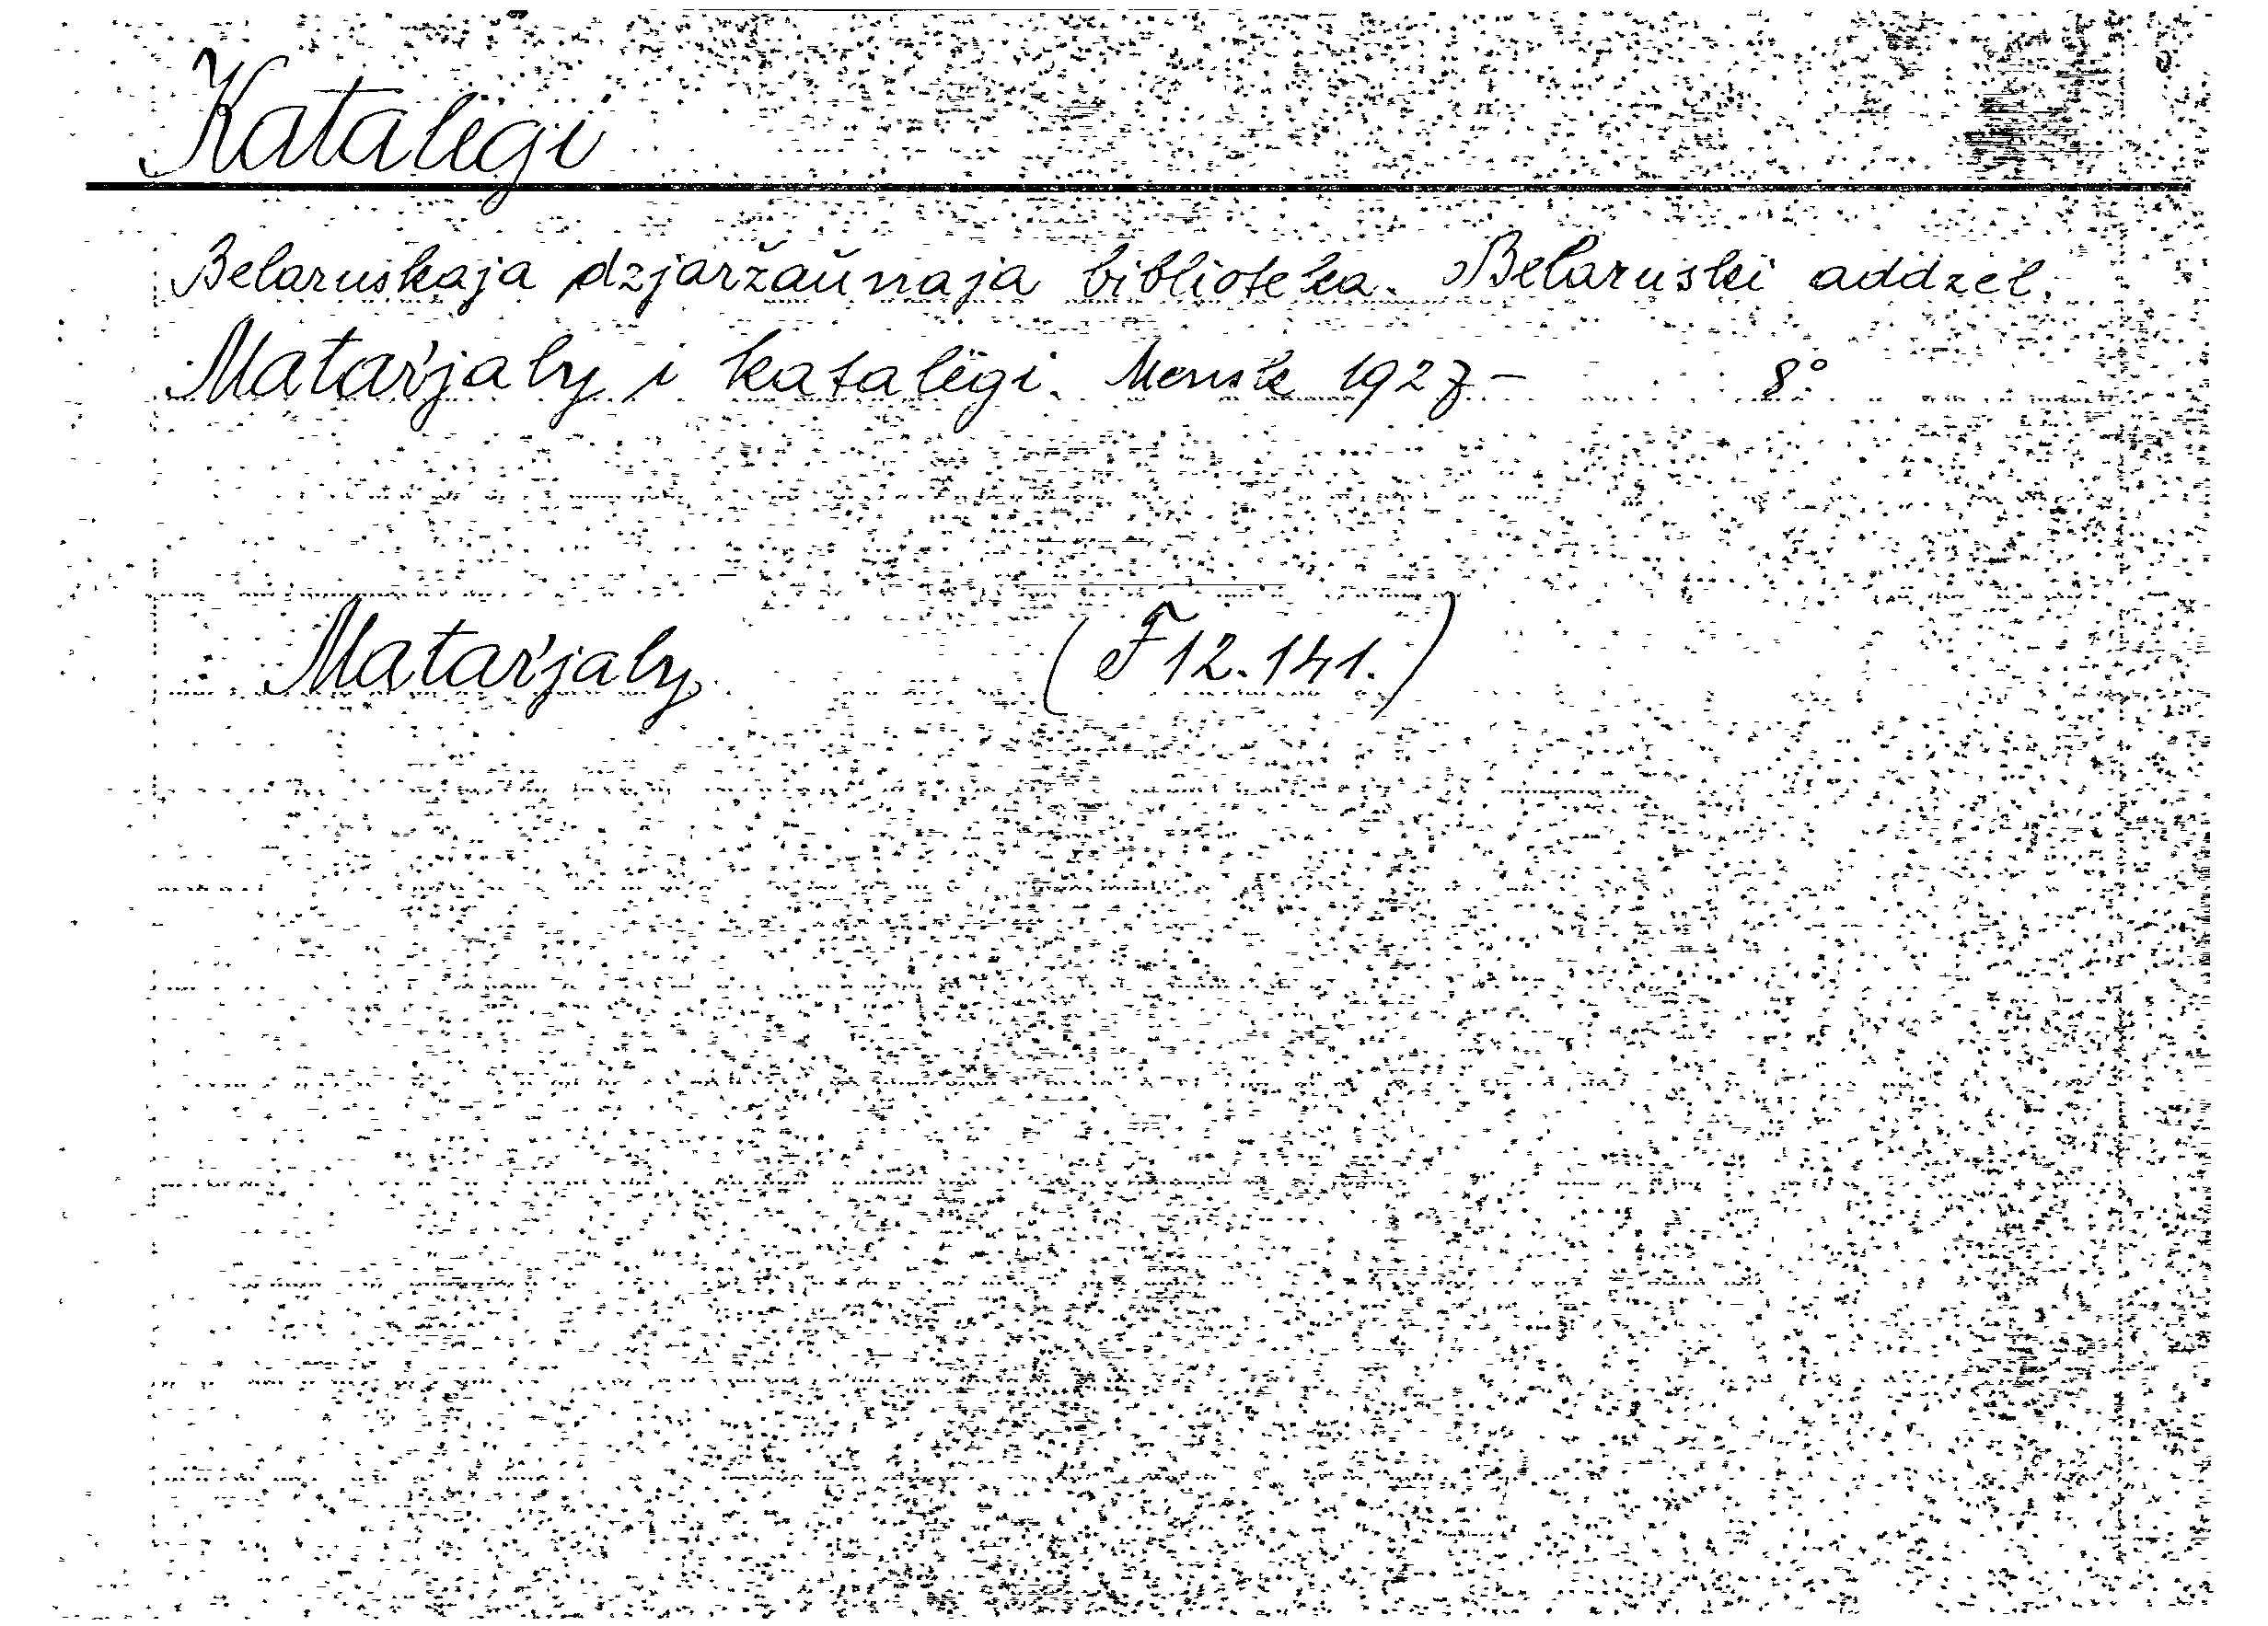 Katalëgi
Belaruskaja dzjaržaŭnaja biblioteka. Belaruski addzel.
Matar'jaly i katalëgi. Mensk 1927– 8°
Matar'jaly (F 12.141.)